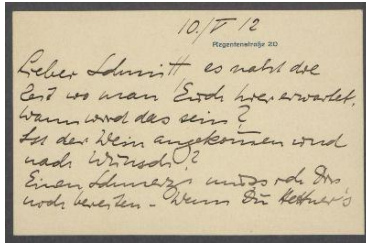 10./V 12
Regentenstraße 20
Lieber Schmitt es naht die
Zeit wo man Euch hier erwartet.
Wann wird das sein?
Ist der Wein angekommen und
nach Wunsch?
Einen Schmerz muss ich Dir
noch bereiten – Wenn Du Hettner's